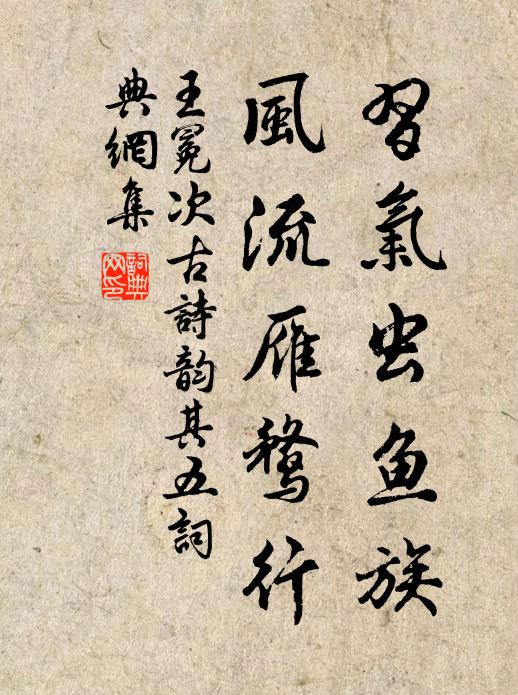 習氣虫鱼族
風流雁鶩行
王冕次古詩韵其五詞
典網集
詞典网印